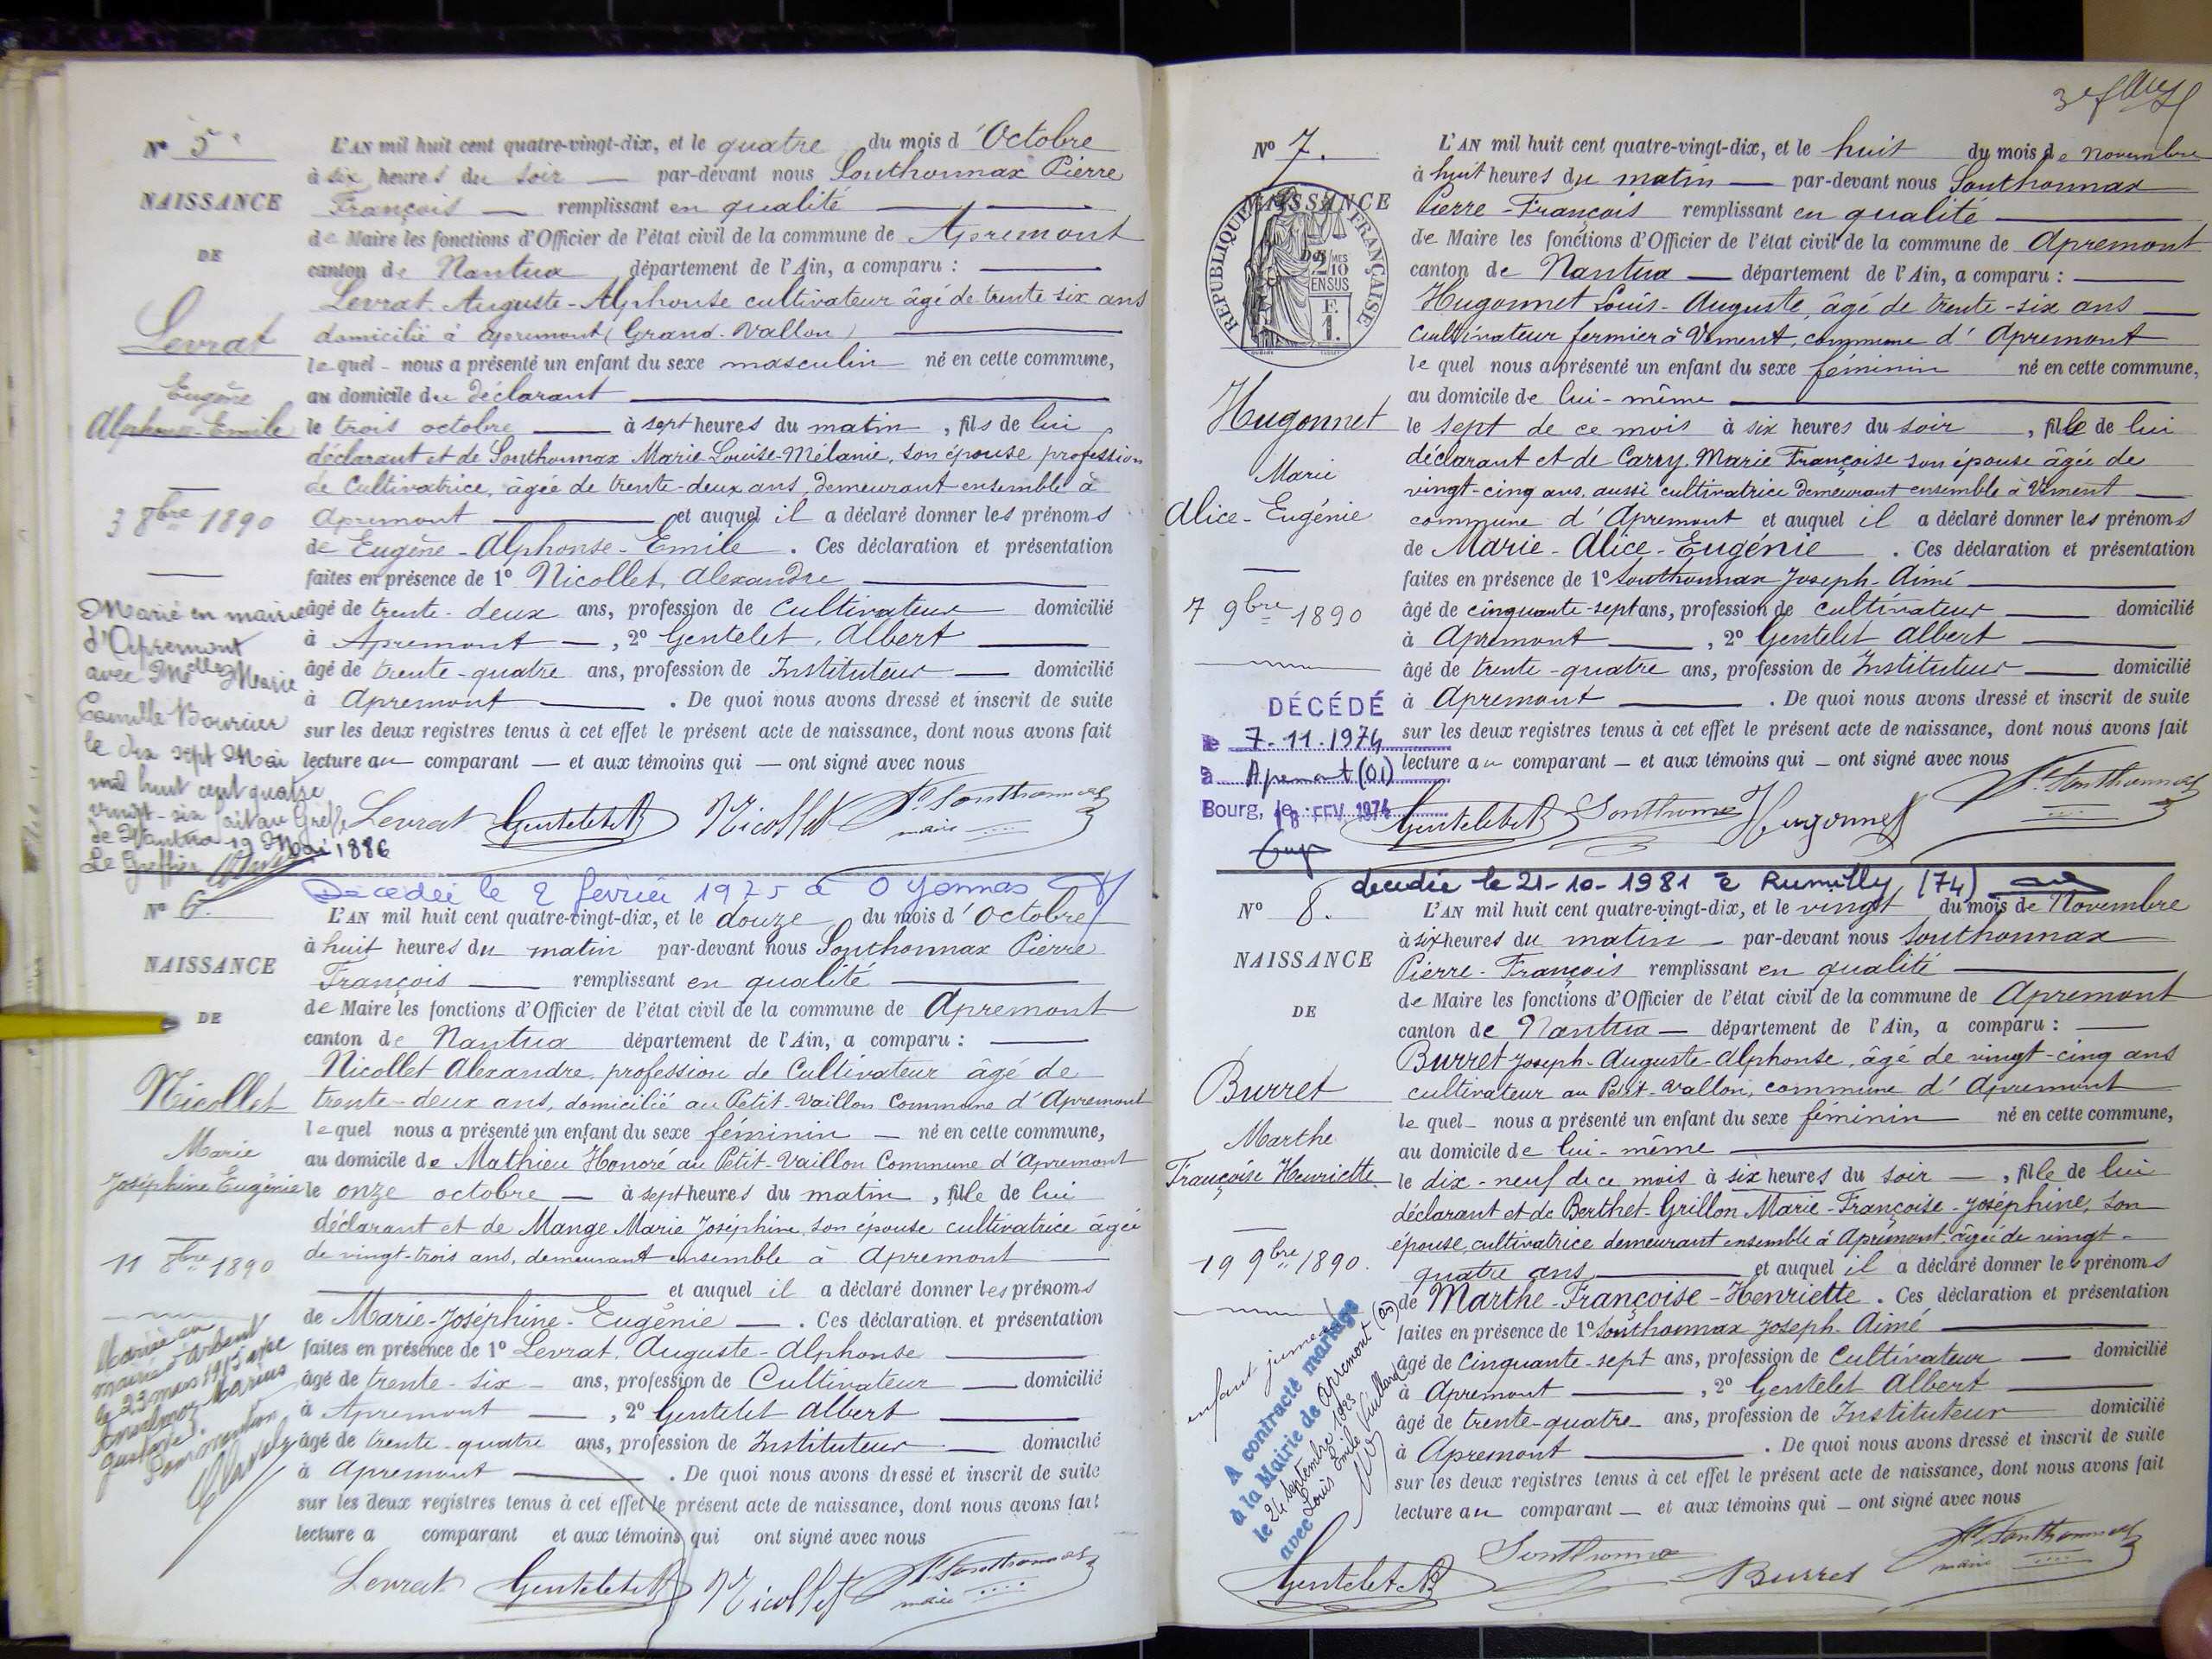 Nº 5
NAISSANCE
DE
Levrat
Eugène
Alphonse-Emile
3 8bre 1890
Marié en mairie
d'Apremont
avec Melle Marie
Camille Bourier
le dix sept Mai
mil huit cent quatre
vingt-six
de Nantua 19 Mai 1886
Le Greffier
L'AN mil huit cent quatre-vingt-dix, et le quatre du mois d'Octobre
à six heures du soir — par-devant nous Southonnax Pierre
François — remplissant en qualité —
de Maire les fonctions d'Officier de l'état civil de la commune de Apremont
canton de Nantua département de l'Ain, a comparu : —
Levrat Auguste-Alphonse cultivateur âgé de trente six ans
domicilié à apremont (Grand-Vallon) —
lequel nous a présenté un enfant du sexe masculin né en cette commune,
au domicile du déclarant —
le trois octobre — à sept heures du matin, fils de lui
déclarant et de Southonnax Marie-Louise-Mélanie, son épouse profession
de Cultivatrice, âgée de trente-deux ans, demeurant ensemble à
Apremont — et auquel il a déclaré donner les prénoms
de Eugène-Alphonse-Emile. Ces déclaration et présentation
faites en présence de 1º Nicollet, Alexandre —
âgé de trente-deux ans, profession de Cultivateur — domicilié
à Apremont —, 2º Gentelet, Albert —
âgé de trente-quatre ans, profession de Instituteur — domicilié
à Apremont — . De quoi nous avons dressé et inscrit de suite
sur les deux registres tenus à cet effet le présent acte de naissance, dont nous avons fait
lecture au — comparant — et aux témoins qui — ont signé avec nous
Levrat Gentelet A Nicollet Southonnax
maire
Décédée le 2 février 1975 à Oyonnax
Nº 6.
NAISSANCE
DE
Nicollet
Marie
Joséphine Eugénie
11 8bre 1890
Mariée en
mairie d'Arbent
le 23 mars 1915 avec
Anselmoz Marius
Gustave.
Pour mention
L'AN mil huit cent quatre-vingt-dix, et le douze du mois d'Octobre
à huit heures du matin par-devant nous Southonnax Pierre
François — remplissant en qualité —
de Maire les fonctions d'Officier de l'état civil de la commune de Apremont
canton de Nantua département de l'Ain, a comparu : —
Nicollet Alexandre, profession de Cultivateur âgé de
trente-deux ans, domicilié au Petit-Vaillon Commune d'Apremont
lequel nous a présenté un enfant du sexe féminin — né en cette commune,
au domicile de Mathieu Honoré au Petit-Vaillon Commune d'Apremont
le onze octobre — à sept heures du matin, fille de lui
déclarant et de Mange Marie Joséphine, son épouse cultivatrice âgée
de vingt-trois ans, demeurant ensemble à Apremont
— et auquel il a déclaré donner les prénoms
de Marie-Joséphine-Eugénie — . Ces déclaration et présentation
faites en présence de 1º Levrat, Auguste-Alphonse —
âgé de trente-six — ans, profession de Cultivateur — domicilié
à Apremont —, 2º Gentelet Albert —
âgé de trente-quatre ans, profession de Instituteur — domicilié
à Apremont — . De quoi nous avons dressé et inscrit de suite
sur les deux registres tenus à cet effet le présent acte de naissance, dont nous avons fait
lecture a comparant et aux témoins qui ont signé avec nous
Levrat Gentelet A Nicollet Southonnax
maire
Nº 7.
NAISSANCE
RÉPUBLIQUE FRANÇAISE
2/10 EN SUS
F. 1.
Hugonnet
Marie
Alice-Eugénie
7 9bre 1890
DÉCÉDÉ
le 7-11.1974
à Apremont (01)
Bourg, le 18 FEV. 1974
L'AN mil huit cent quatre-vingt-dix, et le huit du mois de novembre
à huit heures du matin — par-devant nous Southonnax
Pierre-François remplissant en qualité —
de Maire les fonctions d'Officier de l'état civil de la commune de Apremont
canton de Nantua — département de l'Ain, a comparu : —
Hugonnet Louis-Auguste, âgé de trente-six ans —
Cultivateur fermier à Viment, commune d'Apremont
lequel nous a présenté un enfant du sexe féminin né en cette commune,
au domicile de lui-même —
le sept de ce mois à six heures du soir, fille de lui
déclarant et de Carry Marie Françoise son épouse âgée de
vingt-cinq ans, aussi cultivatrice demeurant ensemble à Viment —
commune d'Apremont et auquel il a déclaré donner les prénoms
de Marie-Alice-Eugénie. Ces déclaration et présentation
faites en présence de 1º Southonnax Joseph-Aimé —
âgé de cinquante-sept ans, profession de cultivateur — domicilié
à Apremont —, 2º Gentelet Albert —
âgé de trente-quatre ans, profession de Instituteur — domicilié
à Apremont — . De quoi nous avons dressé et inscrit de suite
sur les deux registres tenus à cet effet le présent acte de naissance, dont nous avons fait
lecture au comparant — et aux témoins qui — ont signé avec nous
Gentelet A Southonnax Hugonnet Southonnax
décédée le 21-10-1981 à Rumilly (74)
Nº 8.
NAISSANCE
DE
Burret
Marthe
Françoise Henriette
19 9bre 1890.
enfant jumeau
A contracté mariage
à la Mairie de Apremont
le 24 septembre 1923
avec Louis Emile Vuillard
L'AN mil huit cent quatre-vingt-dix, et le vingt du mois de Novembre
à six heures du matin — par-devant nous Southonnax
Pierre-François remplissant en qualité —
de Maire les fonctions d'Officier de l'état civil de la commune de Apremont
canton de Nantua — département de l'Ain, a comparu : —
Burret Joseph-Auguste-Alphonse, âgé de vingt-cinq ans
cultivateur au Petit-Vallon, commune d'Apremont
lequel nous a présenté un enfant du sexe féminin né en cette commune,
au domicile de lui-même —
le dix-neuf de ce mois à six heures du soir —, fille de lui
déclarant et de Berthet-Grillon Marie-Françoise-Joséphine, son
épouse, cultivatrice demeurant ensemble à Apremont âgée de vingt-
quatre ans — et auquel il a déclaré donner les prénoms
de Marthe-Françoise-Henriette. Ces déclaration et présentation
faites en présence de 1º Southonnax Joseph-Aimé —
âgé de Cinquante-sept ans, profession de Cultivateur — domicilié
à Apremont —, 2º Gentelet Albert —
âgé de trente-quatre ans, profession de Instituteur domicilié
à Apremont — . De quoi nous avons dressé et inscrit de suite
sur les deux registres tenus à cet effet le présent acte de naissance, dont nous avons fait
lecture au comparant — et aux témoins qui — ont signé avec nous
Gentelet A Southonnax Burret Southonnax
maire